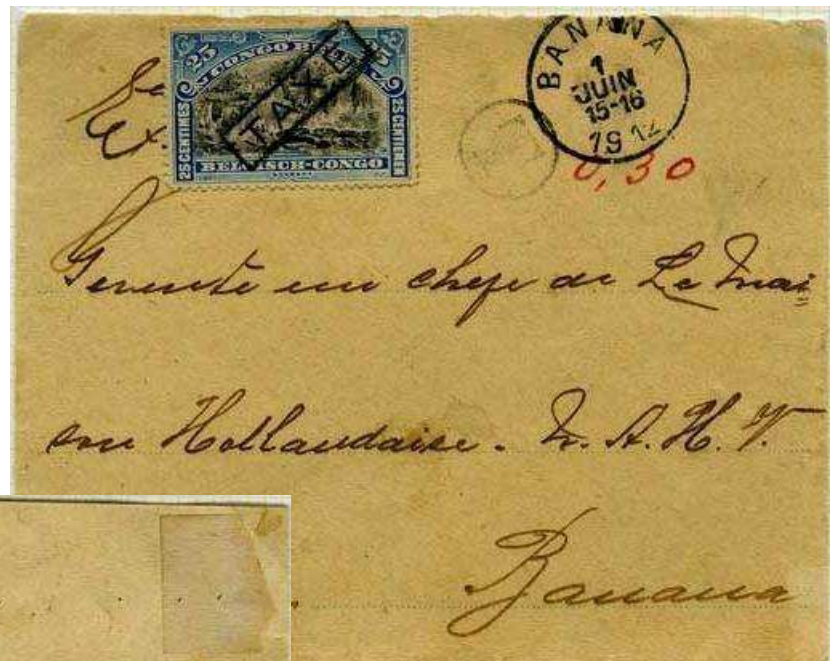 25 CONGO BELGE 25
25 CENTIMES
25 CENTIEMEN
TAXE
BELGISCH-CONGO
BANANA
1
JUIN
15-16
1914
0,30
Gerente em chefe de La Mai
son Hollandaise. N. A. H. V.
Banana